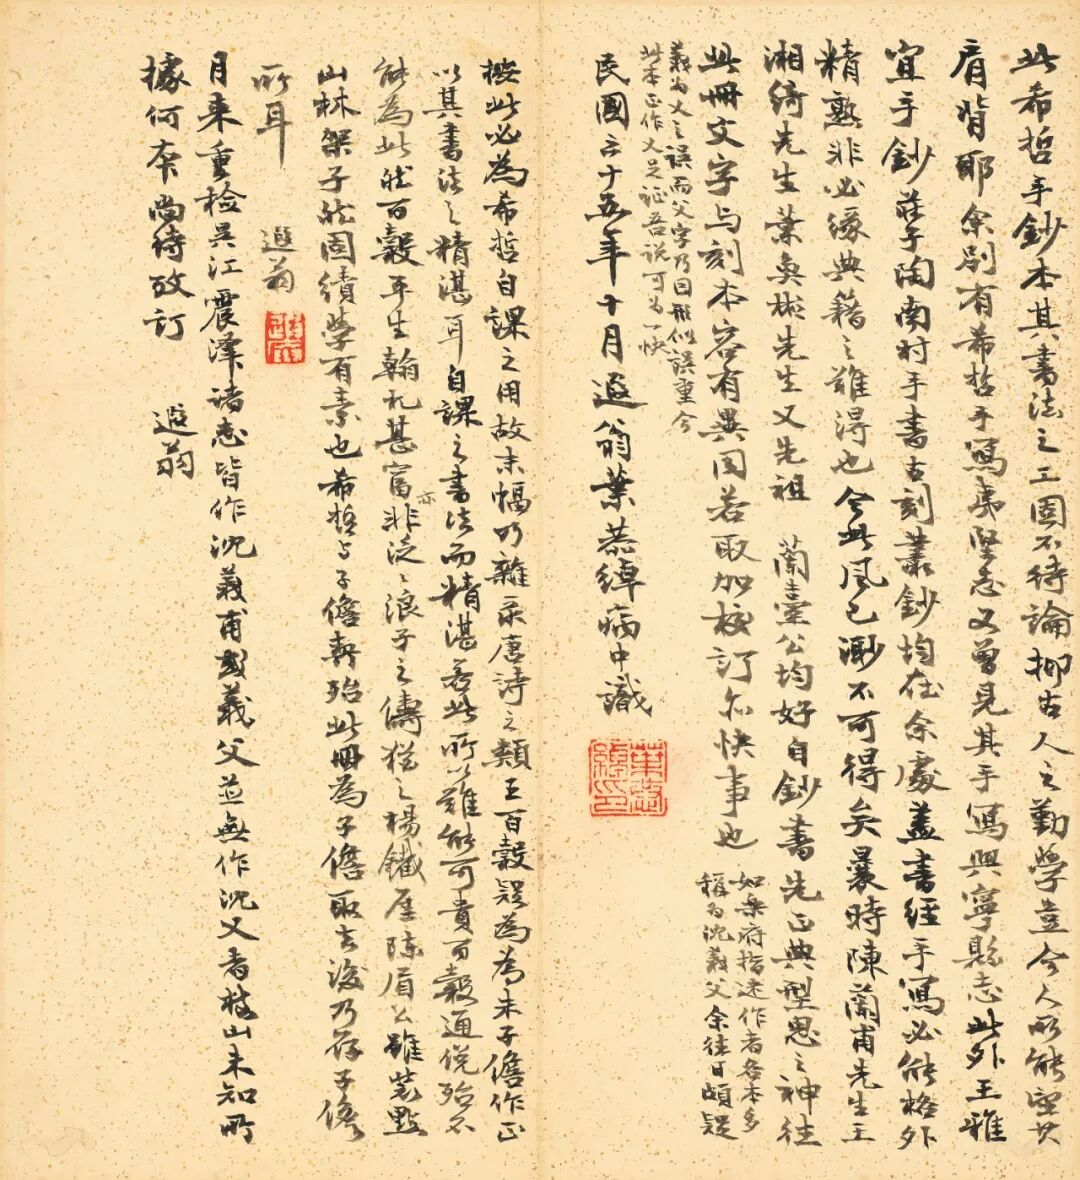 此希哲手鈔本其書法之工固不待論抑古人之勤學豈今人所能望其
肩背耶余別有希哲手寫夷堅志又曾見其手寫興寧縣志此外王雅
宜手鈔莊子陶南村手書古刻叢鈔均在余處蓋書經手寫必能格外
精熟非必緣典籍之難得也今此風已渺不可得矣曩時陳蘭甫先生王
湘綺先生葉奐彬先生又先祖 蘭臺公均好自鈔書先正典型思之神往
此冊文字与刻本容有異同若取加校訂亦快事也
如樂府指迷作者各本多
稱為沈義父余往日頗疑
義為乂之誤而父字乃因形似誤重今
此本正作乂足証吾說可為一快
民國二十五年十月遐翁葉恭綽病中識
葉恭綽印
按此必為希哲自課之用故末幅乃雜录唐詩之類王百穀疑為為朱子儋作正
以其書法之精湛耳自課之書法而精湛若此所以難能可貴百穀通侻殆不
能為此然百穀平生翰札甚富亦非泛泛浪子之儔猶之楊鐵厓陳眉公雖裝點
山林架子然固績學有素也希哲与子儋契殆此冊為子儋取去後乃存子儋
所耳 遐翁
月来重檢吳江震澤諸志皆作沈義甫或義父並無作沈乂者枝山未知所
據何本尚待攷訂 遐翁